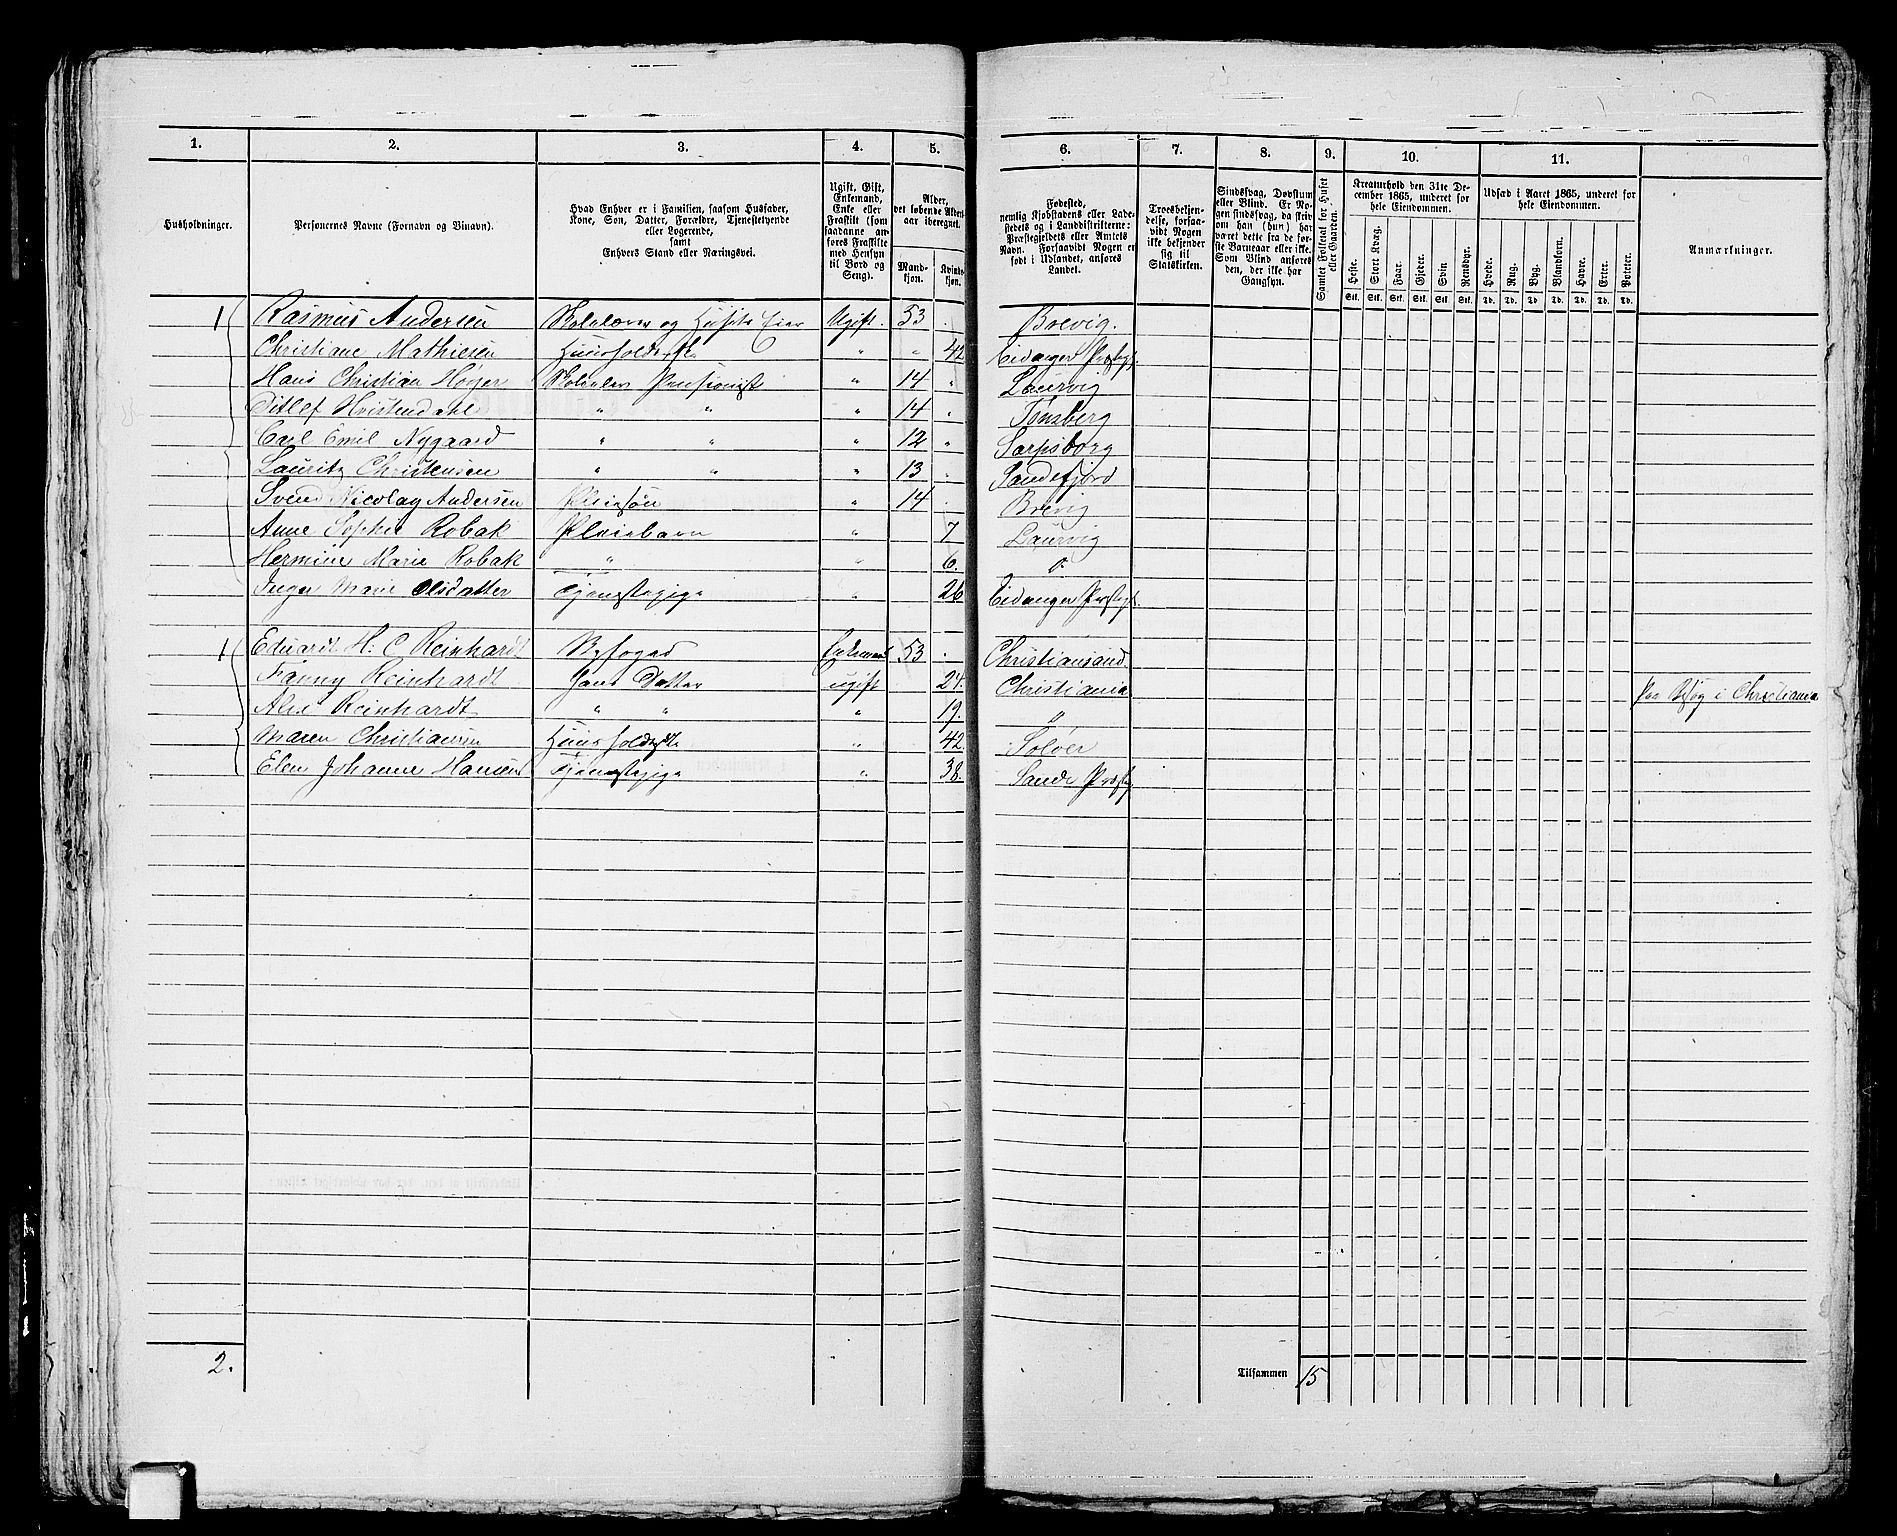 1. 2. 3. 4. 5. 6. 7. 8. 9. 10. 11.
Husholdninger.
Personernes Navne (Fornavn og Binavn).
Hvad Enhver er i Familien, saasom Husfader,
Kone, Søn, Datter, Forældre, Tjenestetyende
eller Logerende,
samt
Enhvers Stand eller Næringsvei.
Ugift, Gift,
Enkemand,
Enke eller
Fraskilt (som
saadanne anføres Fraskilte
med Hensyn
til Bord og
Seng).
Alder,
det løbende Alders-
aar iberegnet.
Mand-
kjøn.
Kvinde-
kjøn.
Fødested,
nemlig Kjøbstadens eller Lade-
stedets og i Landdistrikterne:
Præstegjeldets eller Amtets
Navn. Forsaavidt Nogen er
født i Udlandet, anføres
Landet.
Troesbekjen-
delse, forsaa-
vidt Nogen
ikke bekjender
sig til
Statskirken.
Sindssvag, Døvstum
eller Blind. Er No-
gen sindssvag, da skriv
om han (hun) har
været dette fra de før-
ste Barneaar eller ikke.
Som Blind anføres
den, der ikke har
Gangsyn.
Samlet Folketal for Huset
eller Gaarden.
Kreaturhold den 31te De-
cember 1865, underet for
hele Eiendommen.
Heste. Stort Kvæg. Faar. Gjeder. Svin Rensdyr.
Stk. Stk. Stk. Stk. Stk. Stk.
Udsæd i Aaret 1865, underet for
hele Eiendommen.
Hvede. Rug. Byg. Blandkorn. Havre. Erter. Poteter.
Td. Td. Td. Td. Td. Td. Td.
Anmærkninger.
1 Rasmus Andersen Skolelærer og Husets Eier Ugift. 53 . Brevig.
Christiane Mathiesen Huusholderske " " 42 Eidanger Præstegj.
Hans Christian Høyer Skoleelev Pensionist " 14 " Laurvig
Ditlef Hvistendahl " " " 14 " Tønsberg
Carl Emil Nygaard " " " 12 " Sarpsborg
Lauritz Christensen " " " 13 " Sandefjord
Svend Nicolay Andersen Pleiesøn " 14 . Brevig
Anne Sophie Robak Pleiebarn " 7 Laurvig
Hermine Marie Robak " " 6. "
Inger Marie Olsdatter Tjenestepige " 26 Eidanger Præstegj.
1 Eduardt H. C. Reinhardt Byfoged Enkemand 53 . Christiansand
Fanny Reinhardt hans Datter ugift 24. Christiania Paa Besøg i Christiania
Alex Reinhardt " " " 19. "
Maren Christiansen Huusholderske " 42. Soløer
Elen Johanne Hansen Tjenestepige " 38. Sande Præstegj.
2.
Tilsammen 15